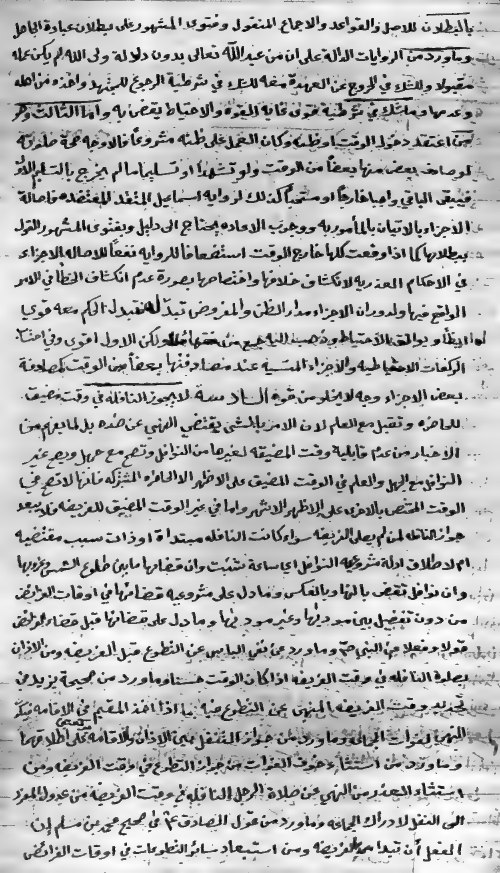 بالبطلان للاصل والقواعد والاجماع المنقول وفتوى المشهور على بطلان عبادة الجاهل
وما ورد من الروايات الدالة على ان من عبد الله تعالى بدون دلالة ولى الله لم يكن عمله
مقبولا وللشك في الخروج عن العهدة معه للشك في شرطية الرجوع للمجتهد واخذه من اهله
وعدمها وما شك في شرطيته والاحتياط يقضي به واما الثالث وهو
من اعتقد دخول الوقت او ظنه وكان العمل على ظنه مشروعا فالاوجه صحة صلوته
لو صادف بعض منها بعضا من الوقت ولو تشهدا او تسليما ما لم يخرج بالتسليم الاول
فيبقى الباقي واجبا خارجا او مستحبا كذلك لرواية اسماعيل المعتضدة فاصالة
الاجزاء بالاتيان بالمأمور به ووجوب الاعادة يحتاج الى دليل وبفتوى المشهور القول
ببطلانها كما اذا وقعت كلها خارج الوقت استضعافا للرواية للاصالة الاجزاء
في الاحكام العذرية لانكشاف خلافها واختصاصها بصورة عدم انكشاف الخطأ في الامر
الواقع فيها ولدوران الاجزاء مدار الظن والمفروض تبدله فيتبدل الحكم معه قوي
ايضا ويوافق الاحتياط وذهب اليه جمع من فقهائنا ولكن الاول اقوى وفي احتساب
الركعات الاحتياطية والاجزاء المنسية عند مصادفتها بعضا من الوقت كمصادفة
بعض الاجزاء وجه لا يخلو من قوة السادسة لا يجوز النافلة في وقت مضيق
للحاضرة وتقع مع العلم لان الامر بالشئ يقتضي النهي عن ضده بل لما يفهم من
الاخبار من عدم قابلية وقت المضيقة لغيرها من النوافل وتصح مع جهل ويصح غير
النوافل مع الجهل والعلم في الوقت المضيق على الاظهر الا الحاضرة المشتركة فانها لا تصح في
الوقت المختص بالاخرى على الاظهر الاشهر واما في غير الوقت المضيق للفريضة فلا يبعد
جواز النافلة لمن لم يصلي الفريضة سواء كانت النافلة مبتدأة او ذات سبب مقتضية
ام لا طلاق ادلة مشروعية النوافل اي ساعة شئت وان قضاءها ما بين طلوع الشمس وغروبها
وان نوافل تقضى بالنهار وبالعكس وما دل على مشروعية قضائها في اوقات الفرائض
من دون تفصيل بين مبدوئتها وغير مبدوئتها وما دل على قضائها قبل قضاء الفرائض
قولا وفعلا من النبي ص وما ورد من نفي الباس عن التطوع قبل الفريضة ومن الاذن
بصلوة النافلة في وقت الفريضة اذا كان الوقت حسنا وما ورد من صحيحة يزيد في
تحديد وقت الفريضة المنهي عن التطوع فيه بما اذا اخذ المقيم في الاقامة
النهي لفوات الجماعة وما ورد من جواز التنفل بين الاذان والاقامة على اطلاقها
وما ورد من استثناء خوف الفوات من جواز التطوع في وقت الفريضة ومن
استثناء العذر من النهي عن صلاة الرجل النافلة في وقت الفريضة من عدول المنفرد
الى النفل لادراك الجماعة وما ورد من قول الصادق ع في صحيح محمد بن مسلم ان
الفضل ان تبدأ بالفريضة ومن استبعاد سائر التطوعات في اوقات الفرائض